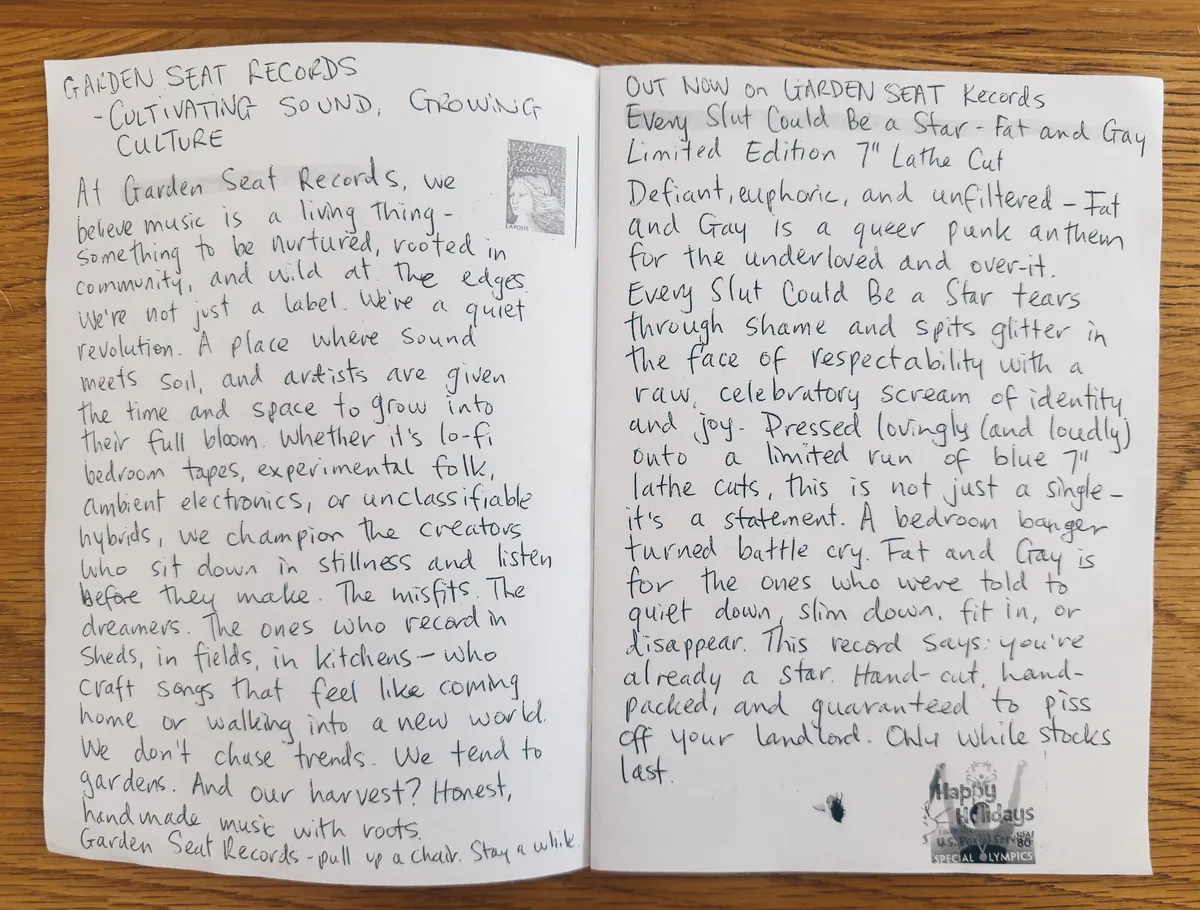 GARDEN SEAT RECORDS
- CULTIVATING SOUND, GROWING
CULTURE
At Garden Seat Records, we
believe music is a living thing -
something to be nurtured, rooted in
community, and wild at the edges.
We're not just a label. We're a quiet
revolution. A place where sound
meets soil, and artists are given
the time and space to grow into
their full bloom. Whether it's lo-fi
bedroom tapes, experimental folk,
ambient electronics, or unclassifiable
hybrids, we champion the creators
who sit down in stillness and listen
before they make. The misfits. The
dreamers. The ones who record in
sheds, in fields, in kitchens - who
craft songs that feel like coming
home or walking into a new world.
We don't chase trends. We tend to
gardens. And our harvest? Honest,
handmade music with roots.
Garden Seat Records - pull up a chair. Stay a while.
Liberté
Égalité
Fraternité
LA POSTE
OUT NOW on GARDEN SEAT Records
Every Slut Could Be a Star - Fat and Gay
Limited Edition 7" Lathe Cut
Defiant, euphoric, and unfiltered - Fat
and Gay is a queer punk anthem
for the underloved and over-it.
Every Slut Could Be a Star tears
through shame and spits glitter in
the face of respectability with a
raw, celebratory scream of identity
and joy. Pressed lovingly (and loudly)
onto a limited run of blue 7"
lathe cuts, this is not just a single -
it's a statement. A bedroom banger
turned battle cry. Fat and Gay is
for the ones who were told to
quiet down, slim down, fit in, or
disappear. This record says: you're
already a star. Hand-cut, hand-
packed, and guaranteed to piss
off your landlord. Only while stocks
last.
Happy
Holidays
U.S. Postal Service
USA
80
SPECIAL OLYMPICS